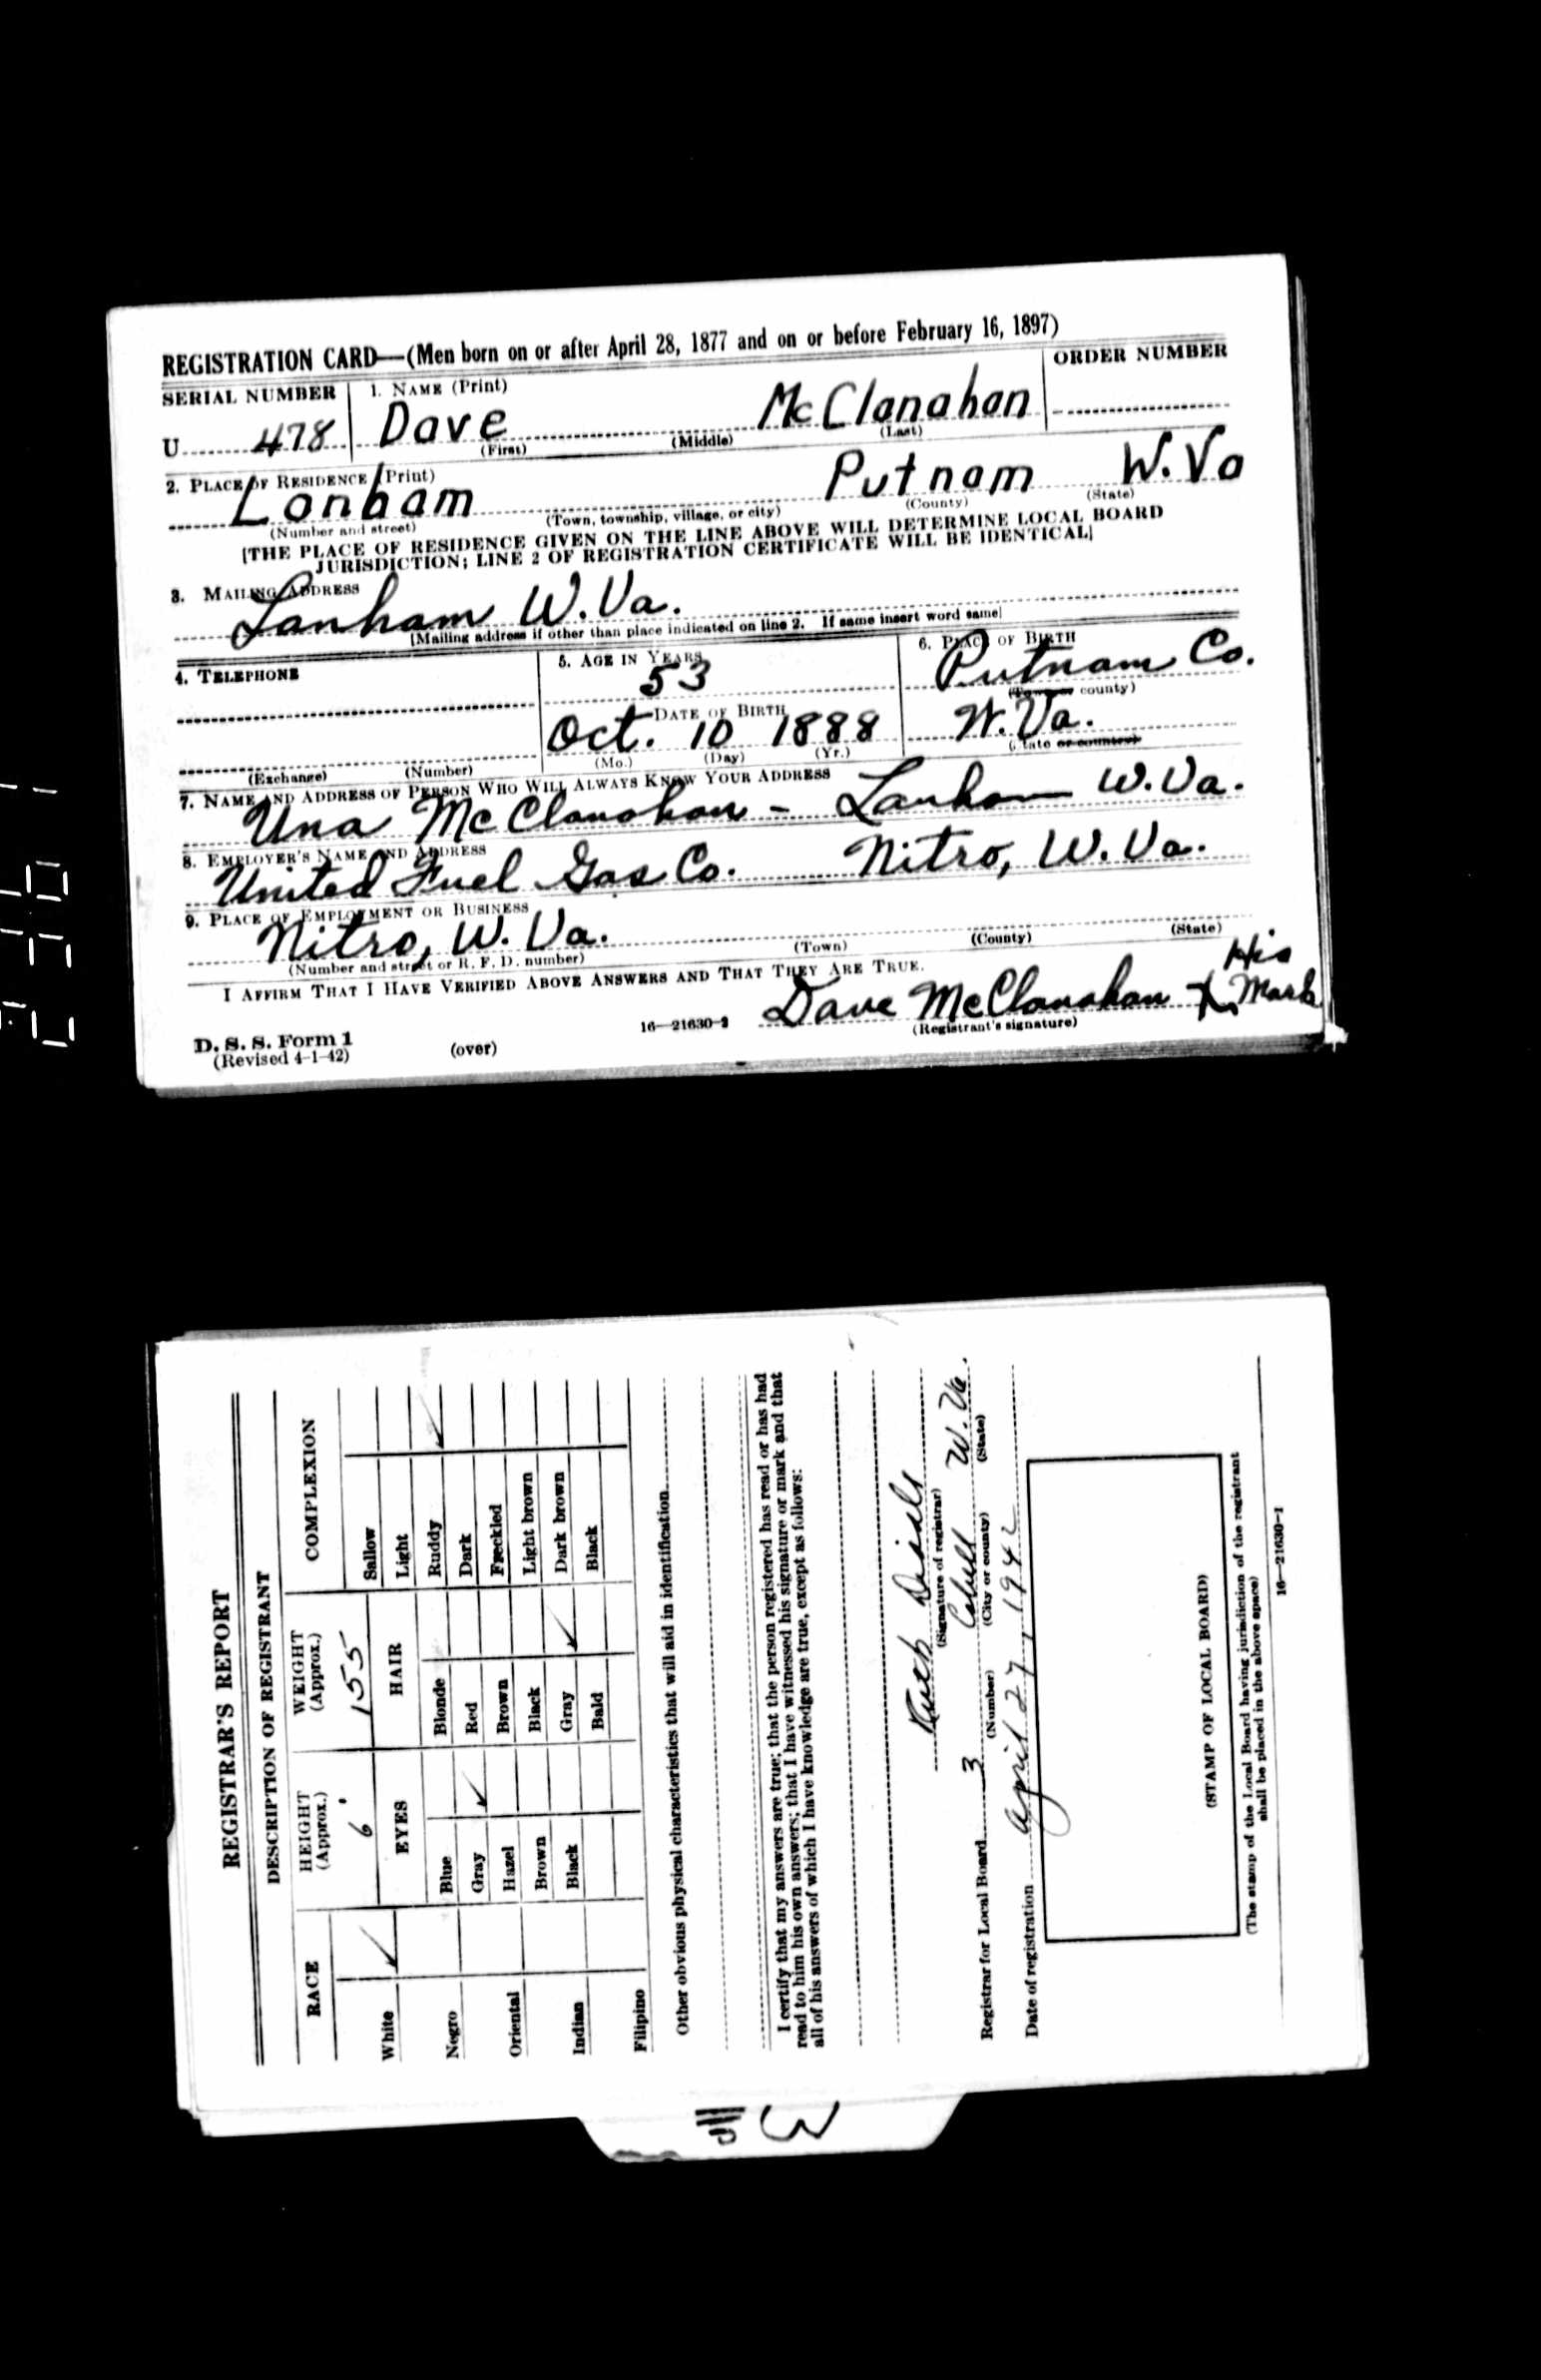 REGISTRATION CARD—(Men born on or after April 28, 1877 and on or before February 16, 1897)
SERIAL NUMBER 1. NAME (Print) ORDER NUMBER
U 478 Dave McClanahan
(First) (Middle) (Last)
2. PLACE OF RESIDENCE (Print)
Lanham Putnam W.Va
(Number and street) (Town, township, village, or city) (County) (State)
[THE PLACE OF RESIDENCE GIVEN ON THE LINE ABOVE WILL DETERMINE LOCAL BOARD
JURISDICTION; LINE 2 OF REGISTRATION CERTIFICATE WILL BE IDENTICAL]
3. MAILING ADDRESS
Lanham W.Va.
[Mailing address if other than place indicated on line 2. If same insert word same]
4. TELEPHONE 5. AGE IN YEARS 6. PLACE OF BIRTH
53 Putnam Co.
(Town or county)
DATE OF BIRTH
Oct. 10 1888 W.Va.
(Exchange) (Number) (Mo.) (Day) (Yr.) (State or country)
7. NAME AND ADDRESS OF PERSON WHO WILL ALWAYS KNOW YOUR ADDRESS
Una McClanahan - Lanham W.Va.
8. EMPLOYER'S NAME AND ADDRESS
United Fuel Gas Co. Nitro, W.Va.
9. PLACE OF EMPLOYMENT OR BUSINESS
Nitro, W.Va.
(Number and street or R. F. D. number) (Town) (County) (State)
I AFFIRM THAT I HAVE VERIFIED ABOVE ANSWERS AND THAT THEY ARE TRUE.
His
Dave McClanahan X Mark
D. S. S. Form 1 16—21630-2 (Registrant's signature)
(Revised 4-1-42) (over)
REGISTRAR'S REPORT
DESCRIPTION OF REGISTRANT
RACE HEIGHT (Approx.) WEIGHT (Approx.) COMPLEXION
6' 155
EYES HAIR
White ✓
Negro
Oriental
Indian
Filipino
Blue
Gray ✓
Hazel
Brown
Black
Blonde
Red
Brown
Black
Gray ✓
Bald
Sallow
Light
Ruddy ✓
Dark
Freckled
Light brown
Dark brown
Black
Other obvious physical characteristics that will aid in identification
I certify that my answers are true; that the person registered has read or has had
read to him his own answers; that I have witnessed his signature or mark and that
all of his answers of which I have knowledge are true, except as follows:
Ruth Dials
(Signature of registrar)
Registrar for Local Board 3 Cabell W.Va.
(Number) (City or county) (State)
Date of registration April 27, 1942
(STAMP OF LOCAL BOARD)
(The stamp of the Local Board having jurisdiction of the registrant
shall be placed in the above space)
16—21630-1